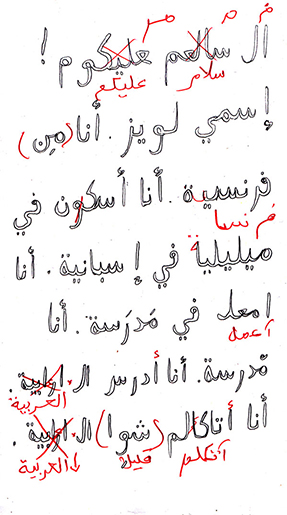 م م مر
ال شالعم عليكوم !
سلام عليكم
إسمي لويز . أنا (من)
فرنسية . أنا أسكون في
فرنسا
ميليلية في إسبانية . أنا
امعل في مَدرَسة . أنا
أعمل
مّدرسة . أنا أدرس ال
العربية
أنا أتاكالم (شوا) ال .
أتكلم قليلا العربية